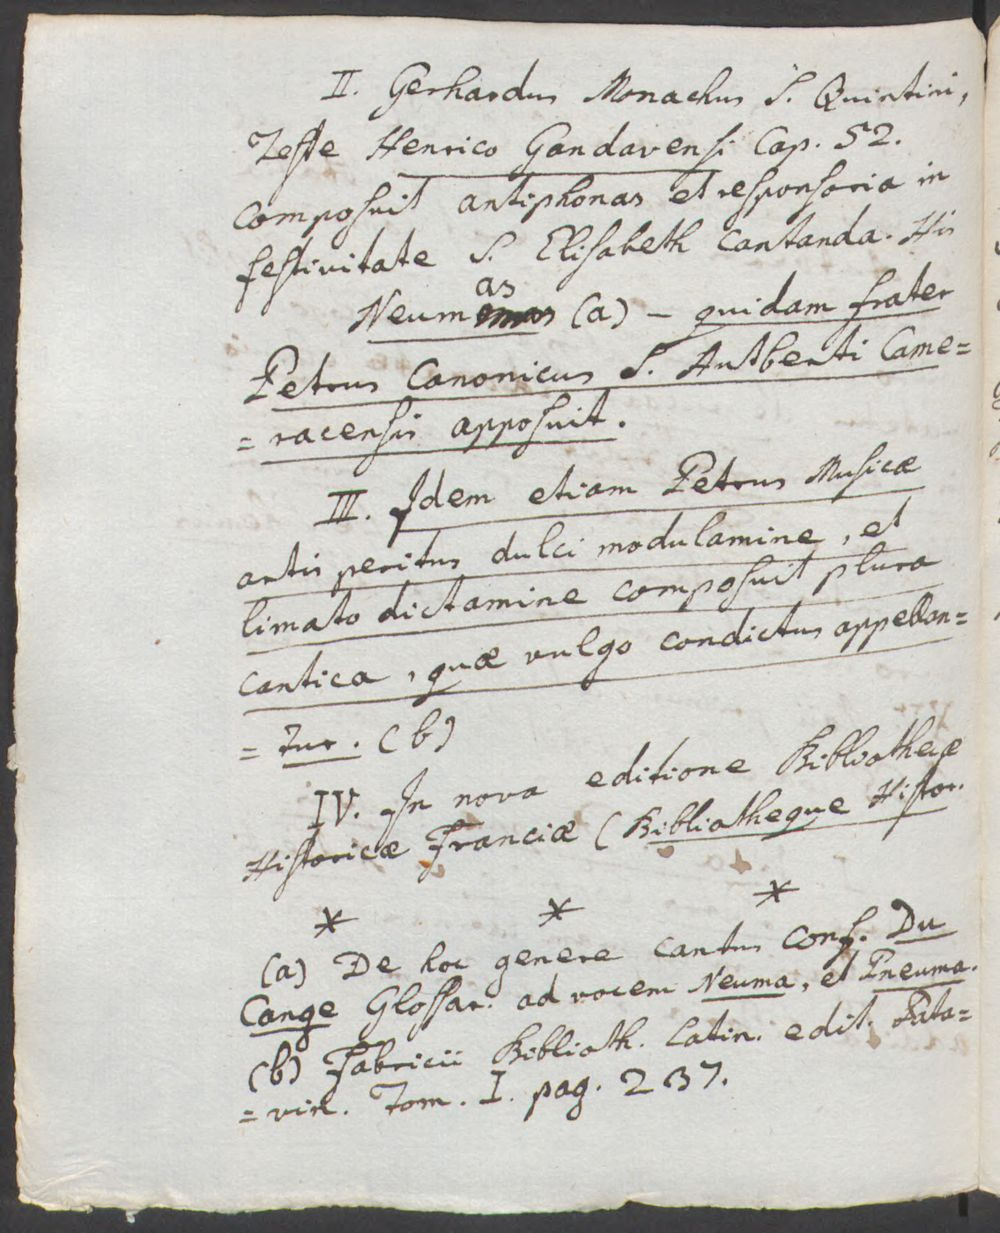 II. Gerhardus Monachus S. Quintini,
Teste Henrico Gandavensi Cap. 52.
composuit antiphonas et responsoria in
festivitate S. Elisabeth cantanda. His
Neumas (a) – quidam frater
Petrus Canonicus S. Autberti Came=
=racensis apposuit.
III. Idem etiam Petrus Musicæ
artis peritus dulci modulamine, et
limato dictamine composuit plura
cantica, quæ vulgo condictus appellan=
=tur. (b)
IV. In nova editione Bibliothecæ
Historicæ Franciæ (Bibliotheque Histor.
* * *
(a) De hoc genere cantus conf. Du
Cange Glossar. ad vocem Neuma, et Pneuma.
(b) Fabricii Biblioth. Latin. edit. Pata=
=vin. Tom. I. pag. 237.